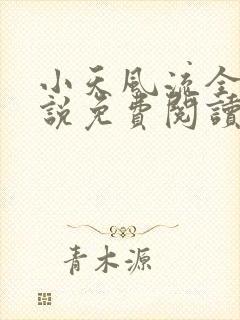 小天風流全
說免費閱讀
青木源